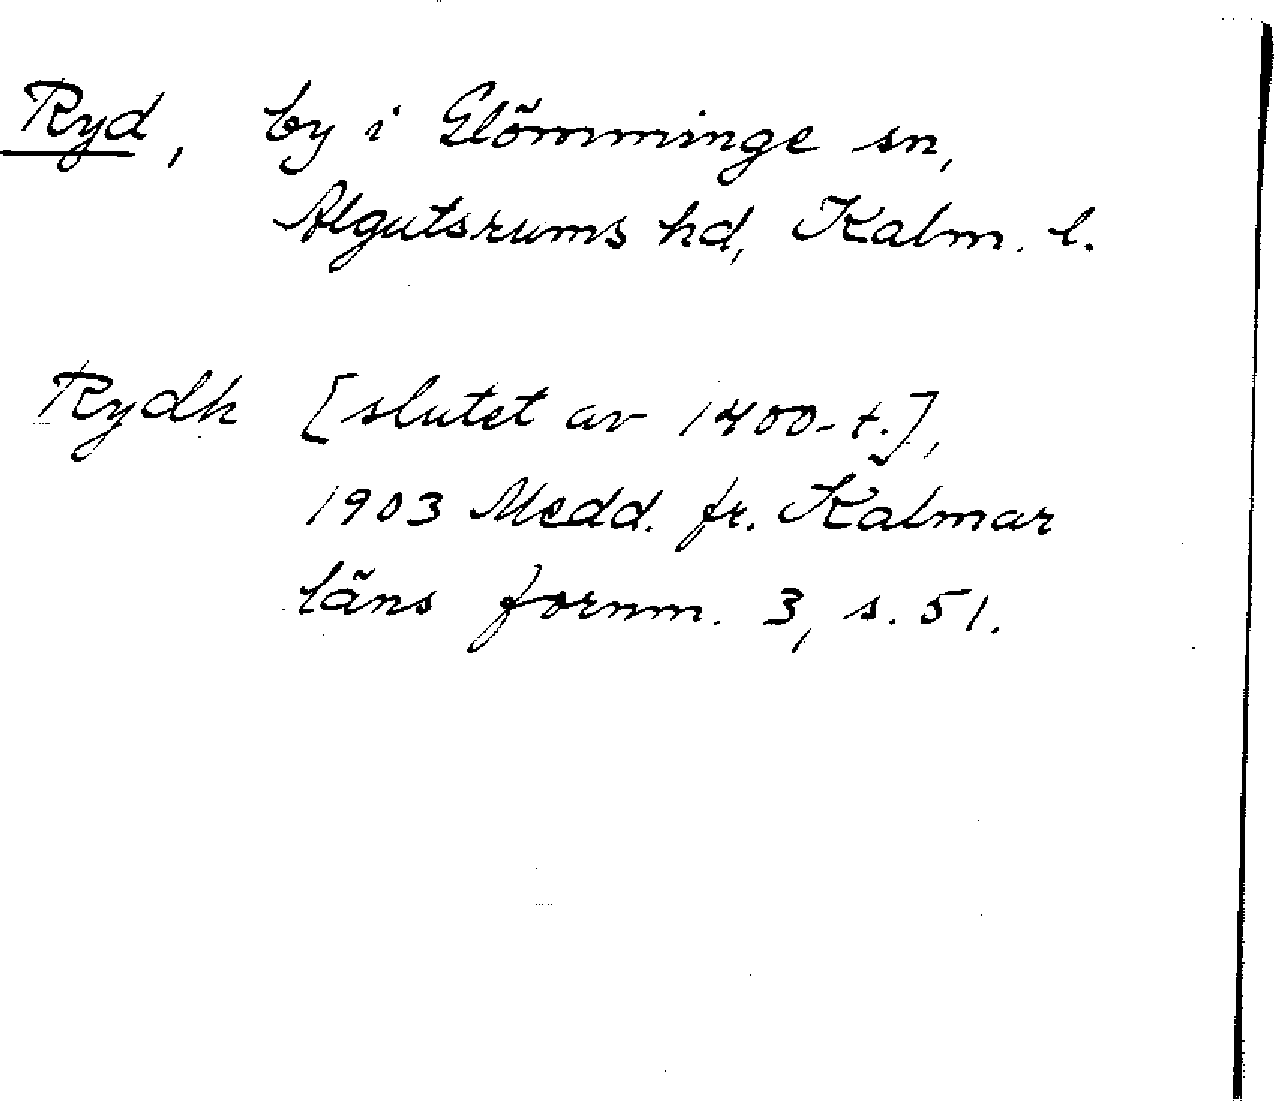 Ryd, by i Glömminge sn,
Algutsrums hd, Kalm. l.
Rydh [slutet av 1400-t.],
1903 Medd. fr. Kalmar
läns fornm. 3, s. 51.